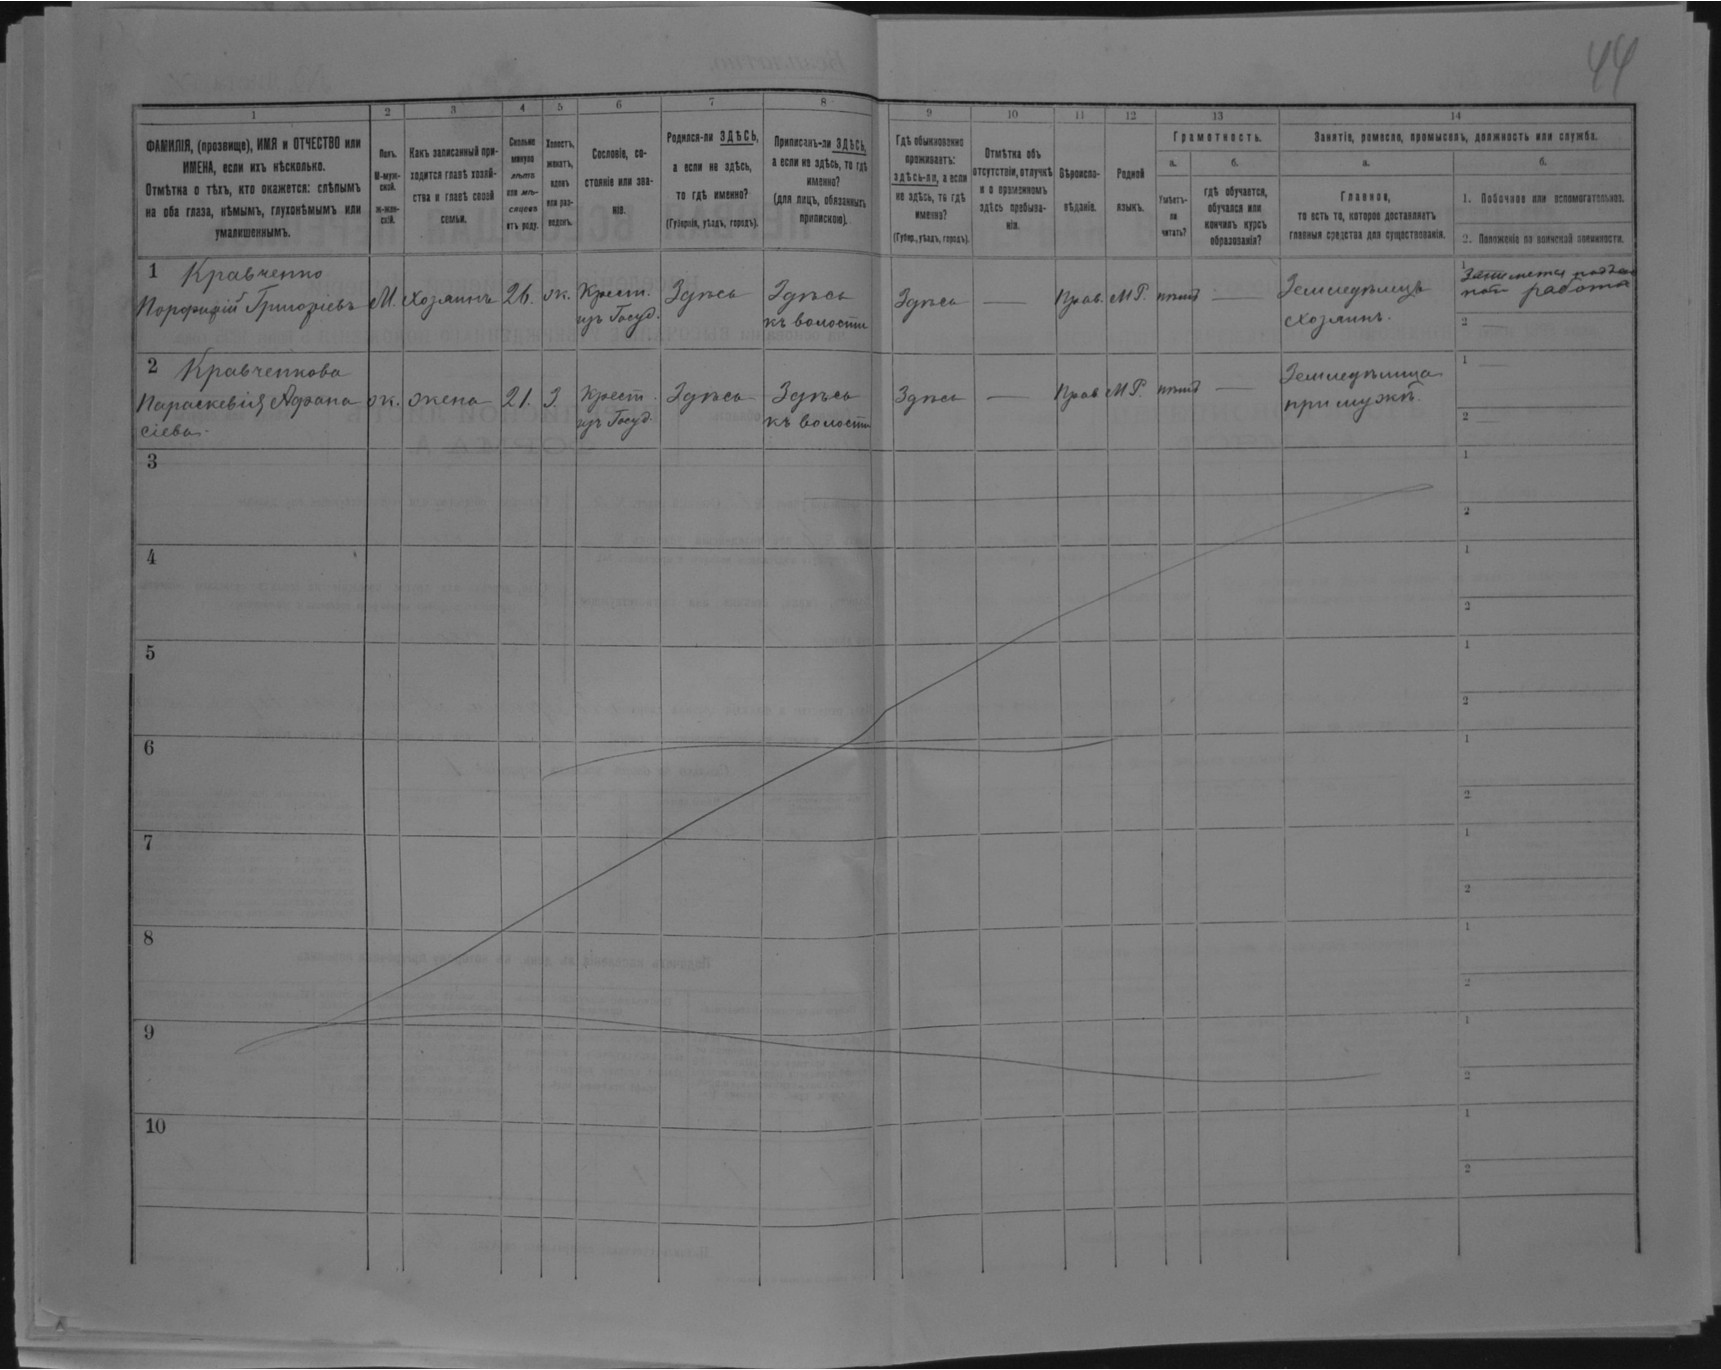 44
1
2
3
4
5
6
7
8
9
10
11
12
13
14
ФАМИЛІЯ, (прозвище), ИМЯ и ОТЧЕСТВО или
ИМЕНА, если ихъ нѣсколько.
Отмѣтка о тѣхъ, кто окажется: слѣпымъ
на оба глаза, нѣмымъ, глухонѣмымъ или
умалишеннымъ.
Полъ.
М-муж-
ской.
Ж-жен-
скій.
Какъ записанный при-
ходится главѣ хозяй-
ства и главѣ своей
семьи.
Сколько
минуло
лѣтъ
или мѣ-
сяцевъ
отъ роду.
Холостъ,
женатъ,
вдовъ
или раз-
веденъ.
Сословіе, со-
стояніе или зва-
ніе.
Родился-ли ЗДѢСЬ,
а если не здѣсь,
то гдѣ именно?
(Губернія, уѣздъ, городъ).
Приписанъ-ли ЗДѢСЬ,
а если не здѣсь, то гдѣ
именно?
(для лицъ, обязанныхъ
припискою).
Гдѣ обыкновенно
проживаетъ:
здѣсь-ли, а если
не здѣсь, то гдѣ
именно?
(Губер., уѣздъ, городъ).
Отмѣтка объ
отсутствіи, отлучкѣ
и о временномъ
здѣсь пребыва-
ніи.
Вѣроиспо-
вѣданіе.
Родной
языкъ.
Грамотность.
а.
Умѣетъ-
ли
читать?
б.
гдѣ обучается,
обучался или
кончилъ курсъ
образованія?
Занятіе, ремесло, промыселъ, должность или служба.
а.
Главное,
то есть то, которое доставляетъ
главныя средства для существованія.
б.
1. Побочное или вспомогательное.
2. Положеніе по воинской повинности.
1 Кравченко
Порфирій Григоріевъ М. хозяинъ 26. ж. Крест. Здѣсь Здѣсь Здѣсь — Прав. М.Р. нѣтъ — Земледѣлецъ
изъ Госуд. къ волости хозяинъ.
1 Занимается
работа
2 —
2 Кравченкова
Параскевія Афана ж. жена 21. З. Крест. Здѣсь Здѣсь Здѣсь — Прав М.Р. нѣтъ — Земледѣлица
сіева. изъ Госуд. къ волости при мужѣ.
1 —
2 —
3
1
2
4
1
2
5
1
2
6
1
2
7
1
2
8
1
2
9
1
2
10
1
2